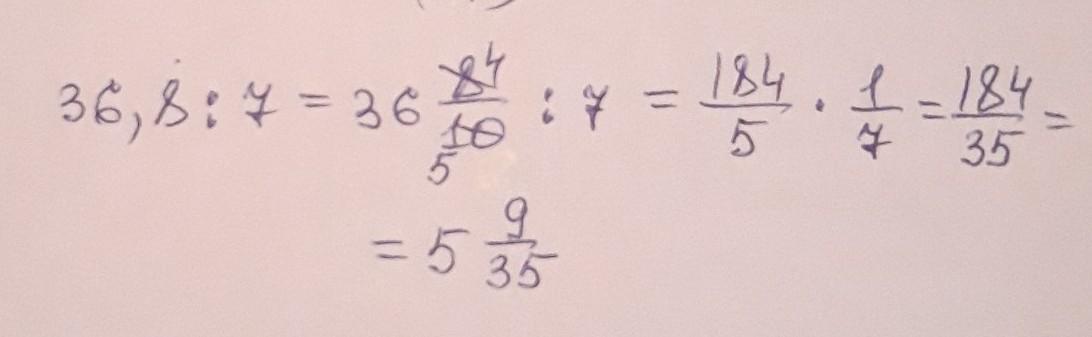 36,8 : 7 = 36 8/10 4/5 : 7 = 184/5 · 1/7 = 184/35 =
= 5 9/35